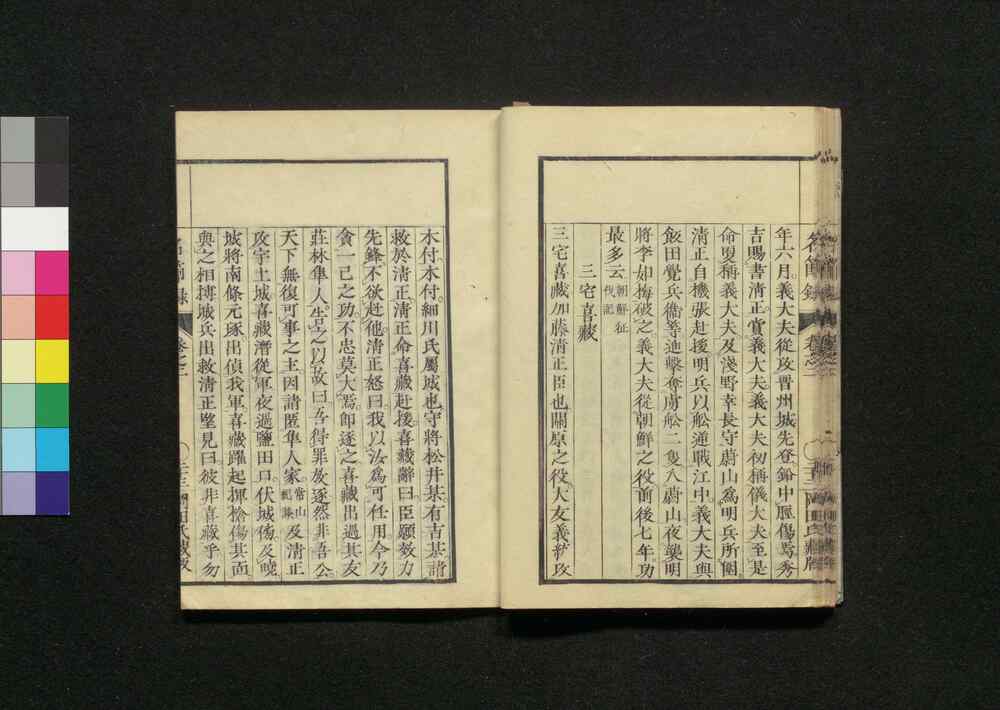 年六月。義大夫從攻晉州城先登。鉛中脛傷焉。秀
吉賜書清正。賞義大夫。義大夫初稱儀大夫。至是
命更稱義大夫。及淺野幸長守蔚山為明兵所圍
清正自機張赴援。明兵以舩逆戰江中。義大夫與
飯田覺兵衞等進擊奪虜舩二隻。入蔚山。夜襲明
將李如梅破之。義大夫從朝鮮之役前後七年。功
最多云。朝鮮征
伐記
三宅喜藏
三宅喜藏。加藤清正臣也。關原之役。大友義統攻
木付。木付。細川氏屬城也。守將松井某有吉某請
救於清正。清正命喜藏赴援。喜藏辭曰。臣願效力
先鋒。不欲赴他。清正怒曰。我以汝為可任用。今乃
貪一己之功。不忠莫大焉。即逐之。喜藏出過其友
莊林隼人。告之以故曰。吾得罪放逐。然非吾公
天下無復可事之主。因請匿隼人家。常山
紀談及清正
攻宇土城。喜藏潛從軍。夜過鹽田口。伏城傍。及曉
城將南條元琢出偵我軍。喜藏躍起揮槍傷其面
與之相搏。城兵出救。清正望見曰。彼非喜藏乎。勿
名節錄 卷之二 〇二十三 岡田氏藏版